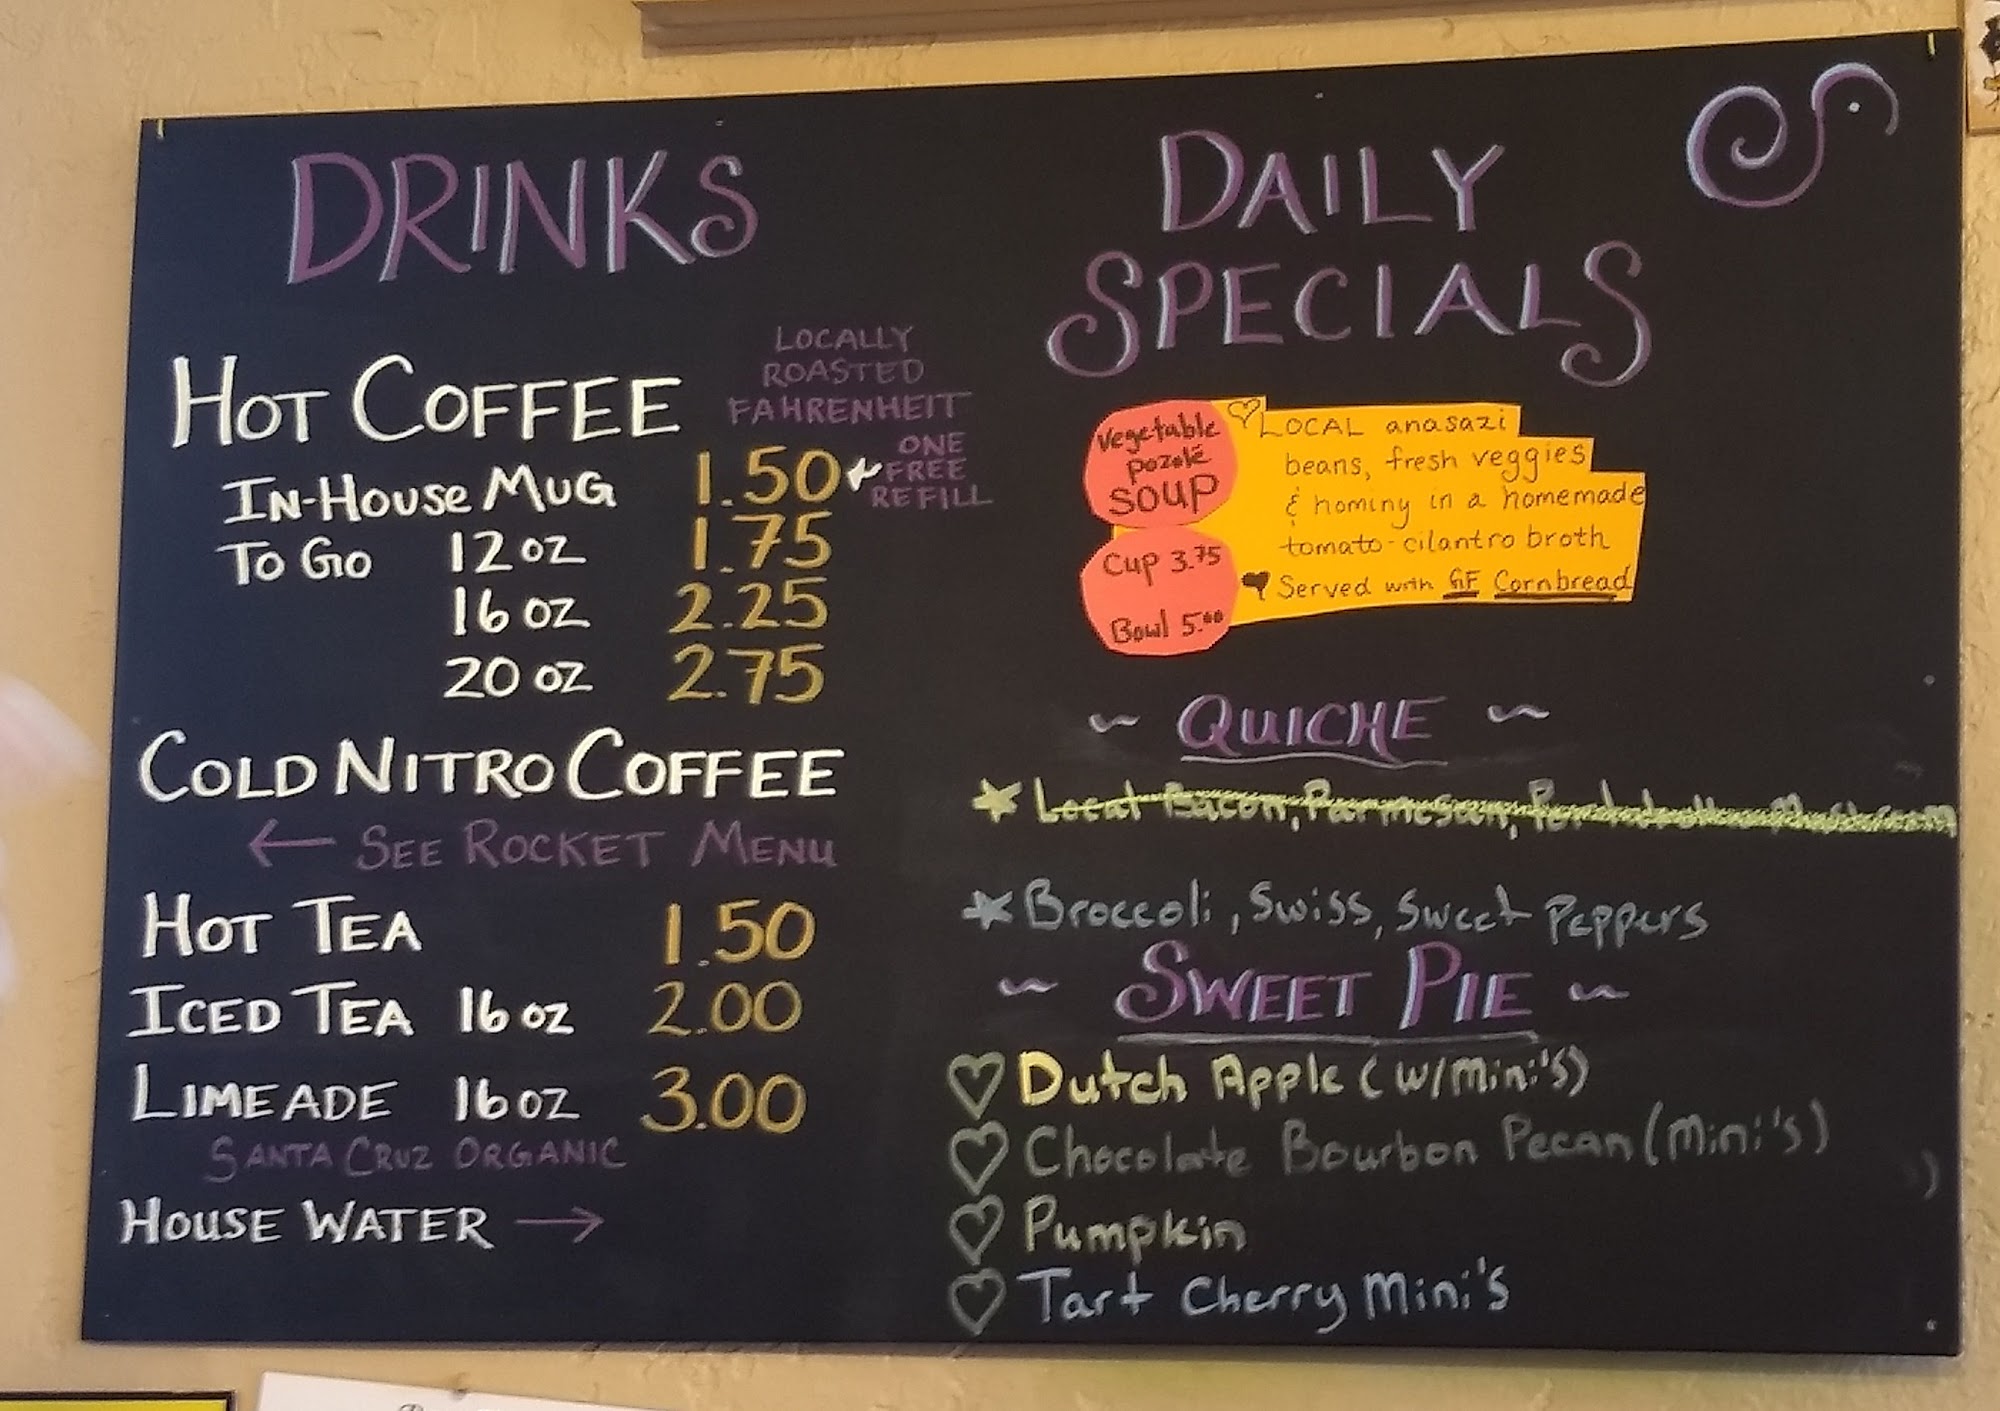 DRINKS
HOT COFFEE
LOCALLY
ROASTED
FAHRENHEIT
IN-HOUSE MUG 1.50
ONE
FREE
REFILL
TO GO 12 oz 1.75
16 oz 2.25
20 oz 2.75
COLD NITRO COFFEE
← SEE ROCKET MENU
HOT TEA 1.50
ICED TEA 16 oz 2.00
LIMEADE 16 oz 3.00
SANTA CRUZ ORGANIC
HOUSE WATER →
DAILY
SPECIALS
Vegetable
pozolé
SOUP
Cup 3.75
Bowl 5.00
LOCAL anasazi
beans, fresh veggies
& hominy in a homemade
tomato-cilantro broth
Served with GF Cornbread
~ QUICHE ~
Local Bacon, Parmesan, Portobello Mushroom
Broccoli, Swiss, Sweet Peppers
~ SWEET PIE ~
Dutch Apple (w/Mini's)
Chocolate Bourbon Pecan (Mini's)
Pumpkin
Tart Cherry Mini's